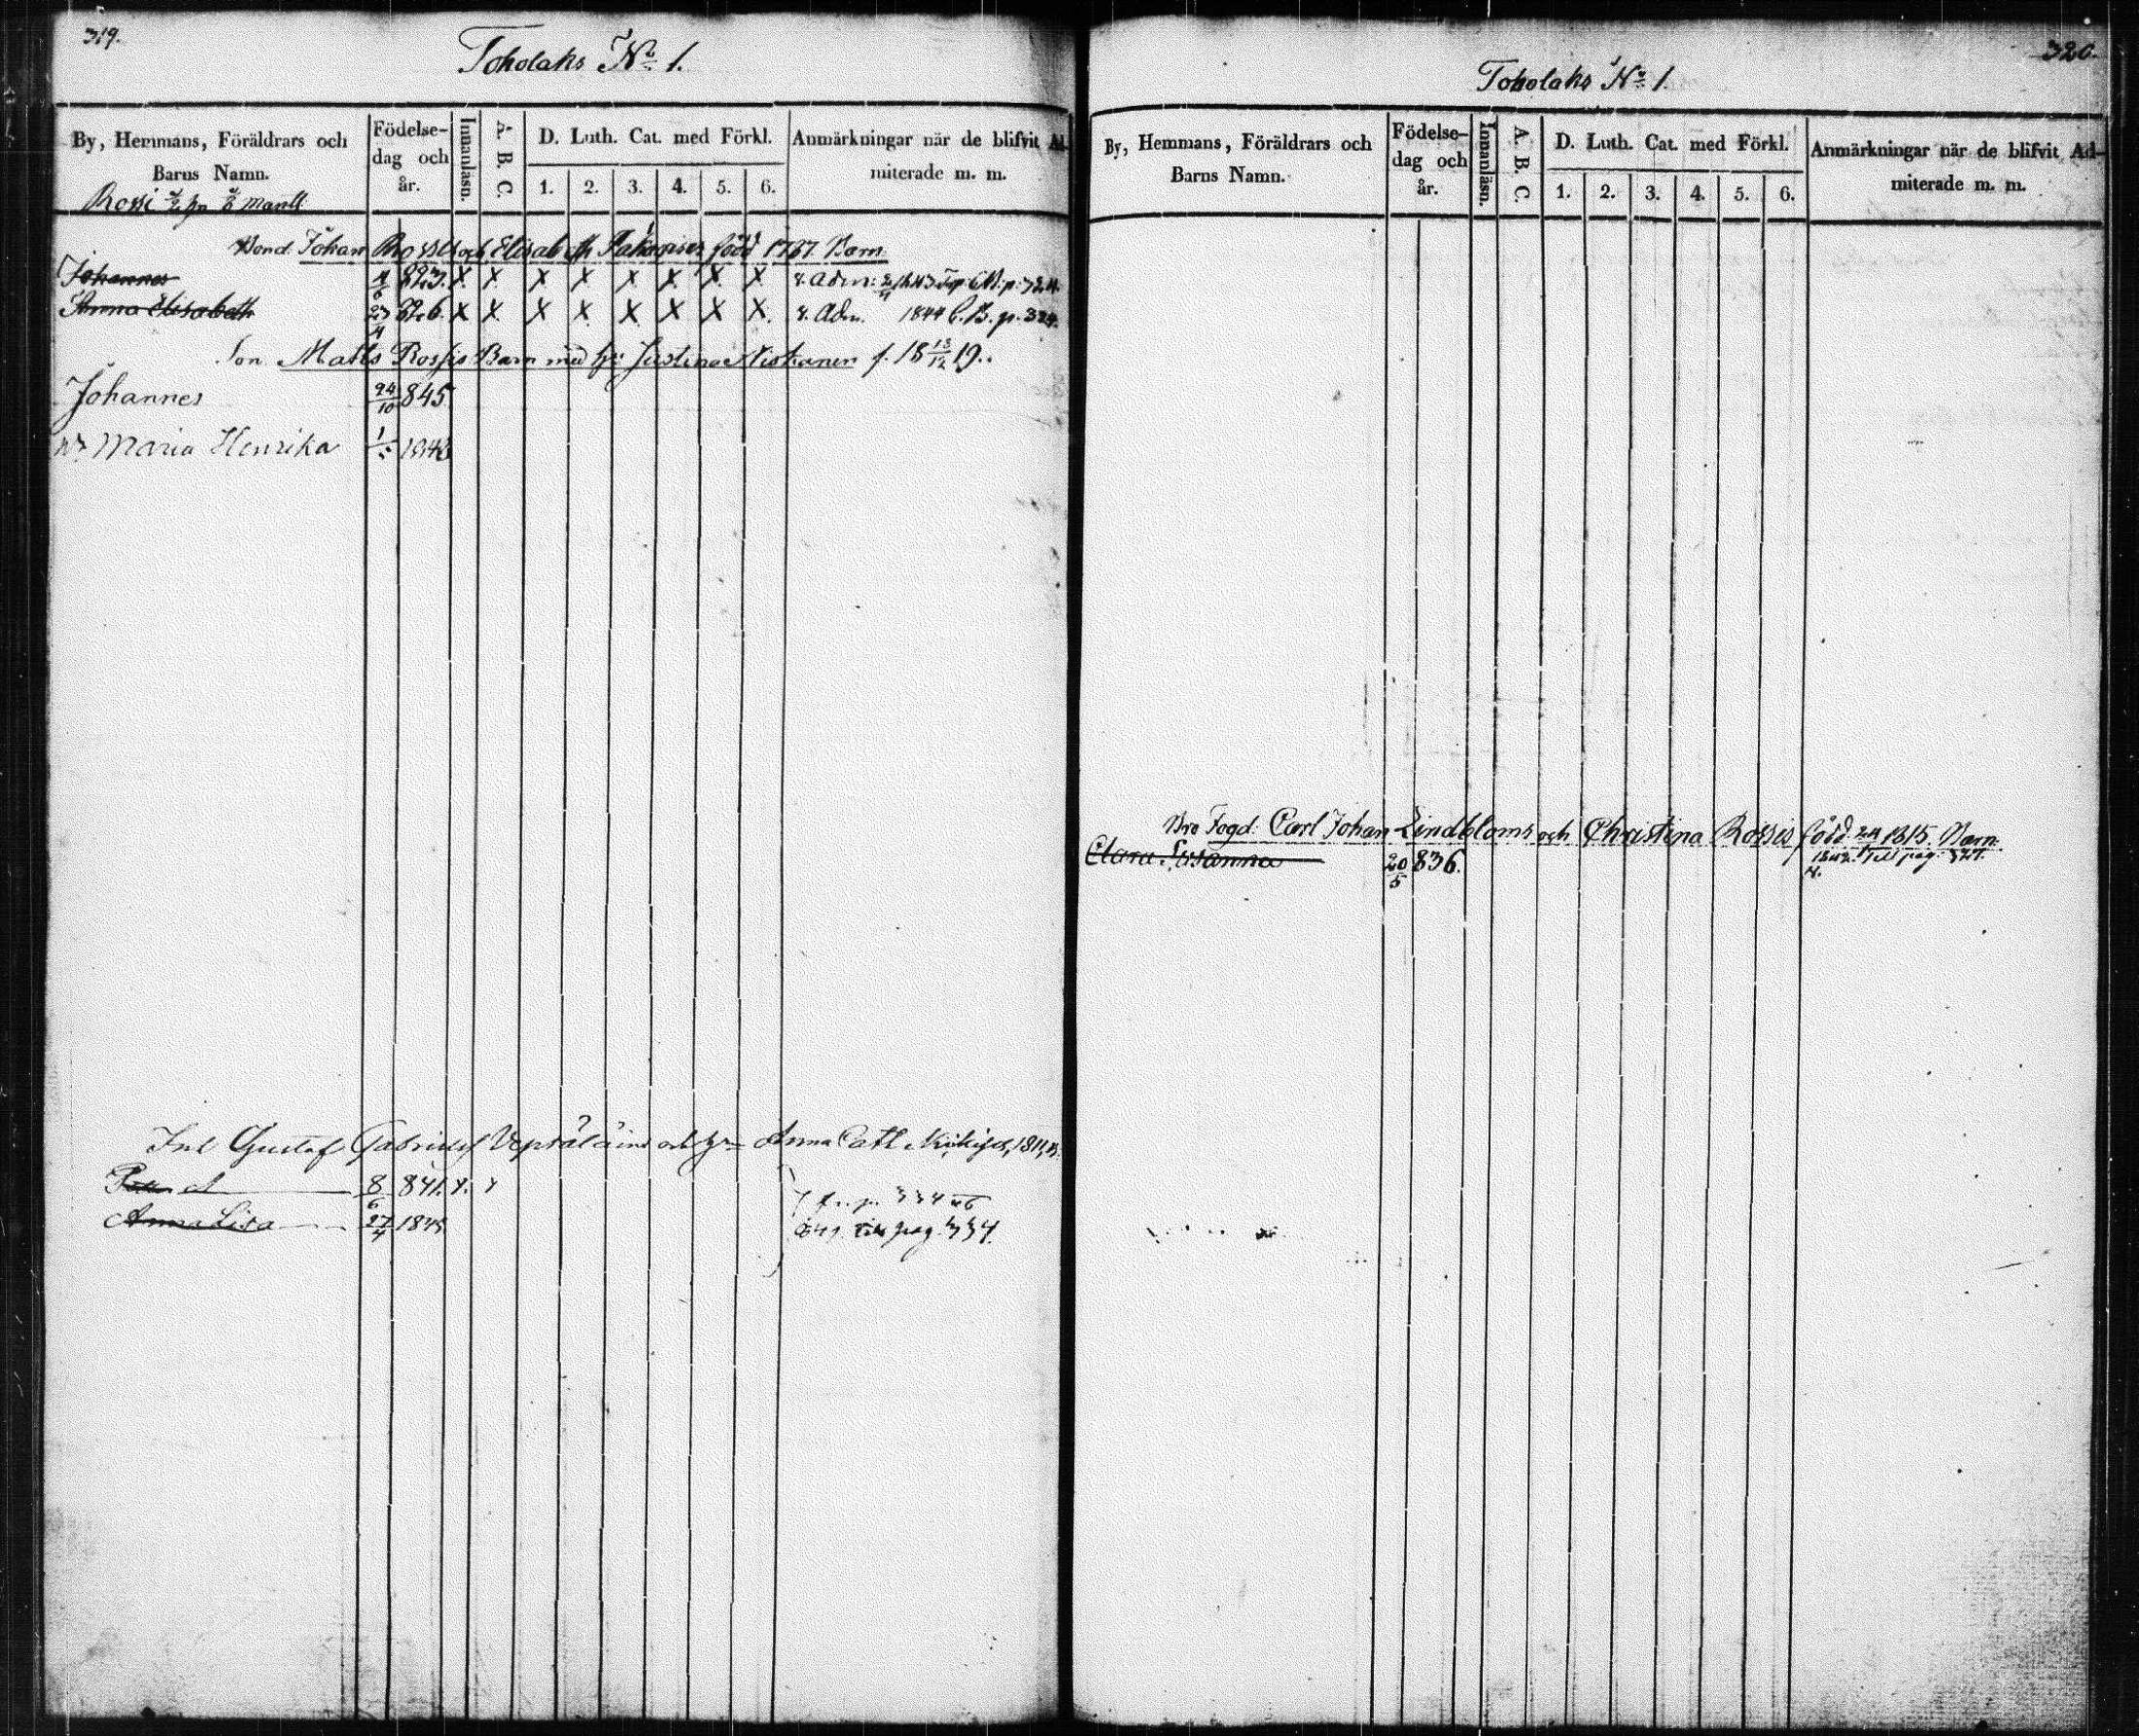 319.
Toholaks No 1.
By, Hemmans, Föräldrars och Barns Namn.
Födelse-dag och år.
Innanläsn.
A. B. C.
D. Luth. Cat. med Förkl.
1. 2. 3. 4. 5. 6.
Anmärkningar när de blifvit Ad-miterade m. m.
Rossi mantl
Bond. Johan Rossis och Elisabeth född 1767. Barn
Johannes 823. X X X X X X X X Adm. 1843 p. 324
Anna Elisabeth 23/4 826. X X X X X X X X Adm. 1844 C. B. p. 324.
Son. Matts Rossis Barn med hu Justina f. 18 13/12 19.
Johannes 24/10 845
Maria Henrika 1843
Inh Gustaf Gabrielss Vepsäläine och hu Anna Cath 1811
8/6 841. x. x p. 334
Anna Lisa 27/4 1845 till pag. 334.
320.
Toholaks No 1.
By, Hemmans, Föräldrars och Barns Namn.
Födelse-dag och år.
Innanläsn.
A. B. C.
D. Luth. Cat. med Förkl.
1. 2. 3. 4. 5. 6.
Anmärkningar när de blifvit Ad-miterade m. m.
Bro Fogd: Carl Johan Lindbloms och Christina Rossis född 24 1815. Barn.
Clara Susanna 20/5 836. 1842 Till pag. 327.